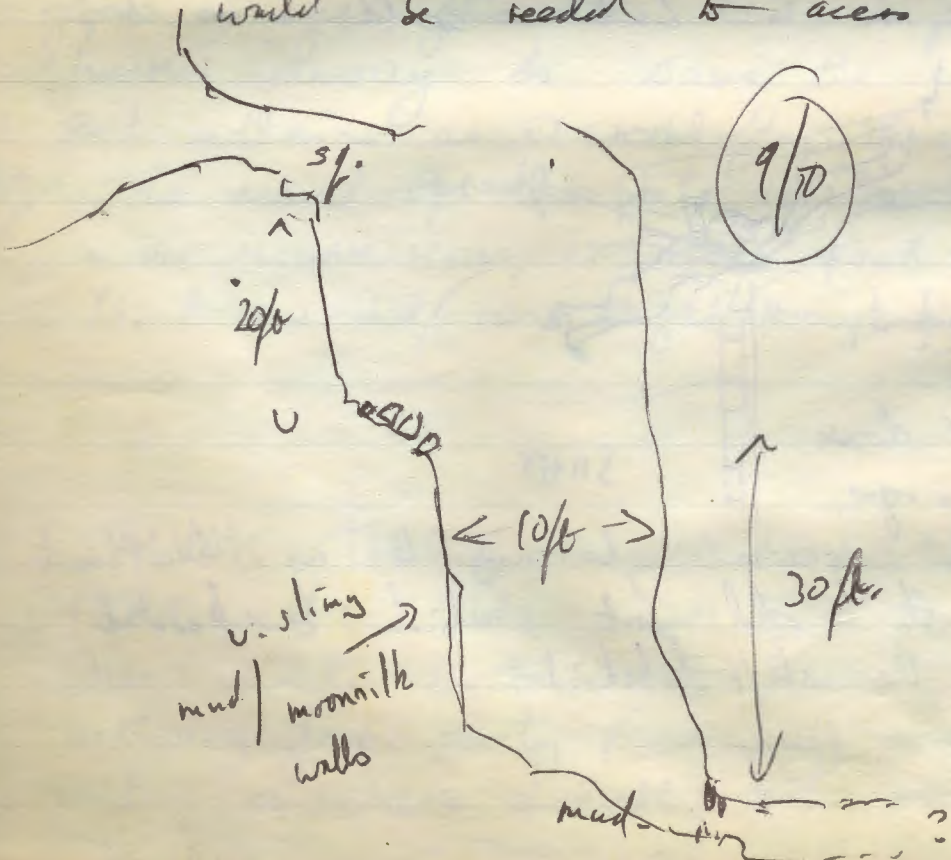 would be needed to access
sq.
9/10
20ft
U
<- 10ft ->
30ft.
v. slimy
mud / moonmilk
walls
mud
?